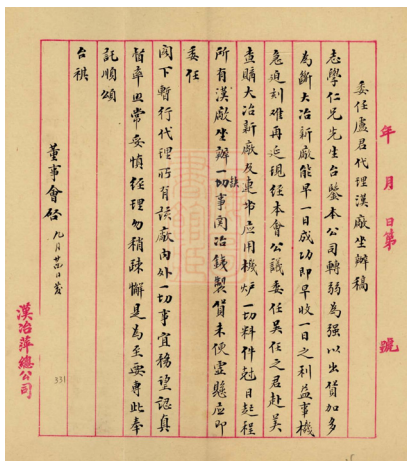 年 月 日第 號
委任盧君代理漢廠坐辦稿
志學仁兄先生台鑒本公司轉弱為强以出貨加多
為斷大冶新廠能早一日成功即早收一日之利益事機
急迫刻難再延現經本會公議委任吳任之君赴美
查購大冶新廠及連帶應用機炉一切料件尅日起程
所有漢廠坐辦一切事關冶鐵製貨未便虛懸應即
委任
閣下暫行代理所有該廠內外一切事宜務望認真
督率照常妥慎經理勿稍疎懈是為至要專此奉
託順頌
台祺
董事會啓 九月 日發
漢冶萍總公司
331